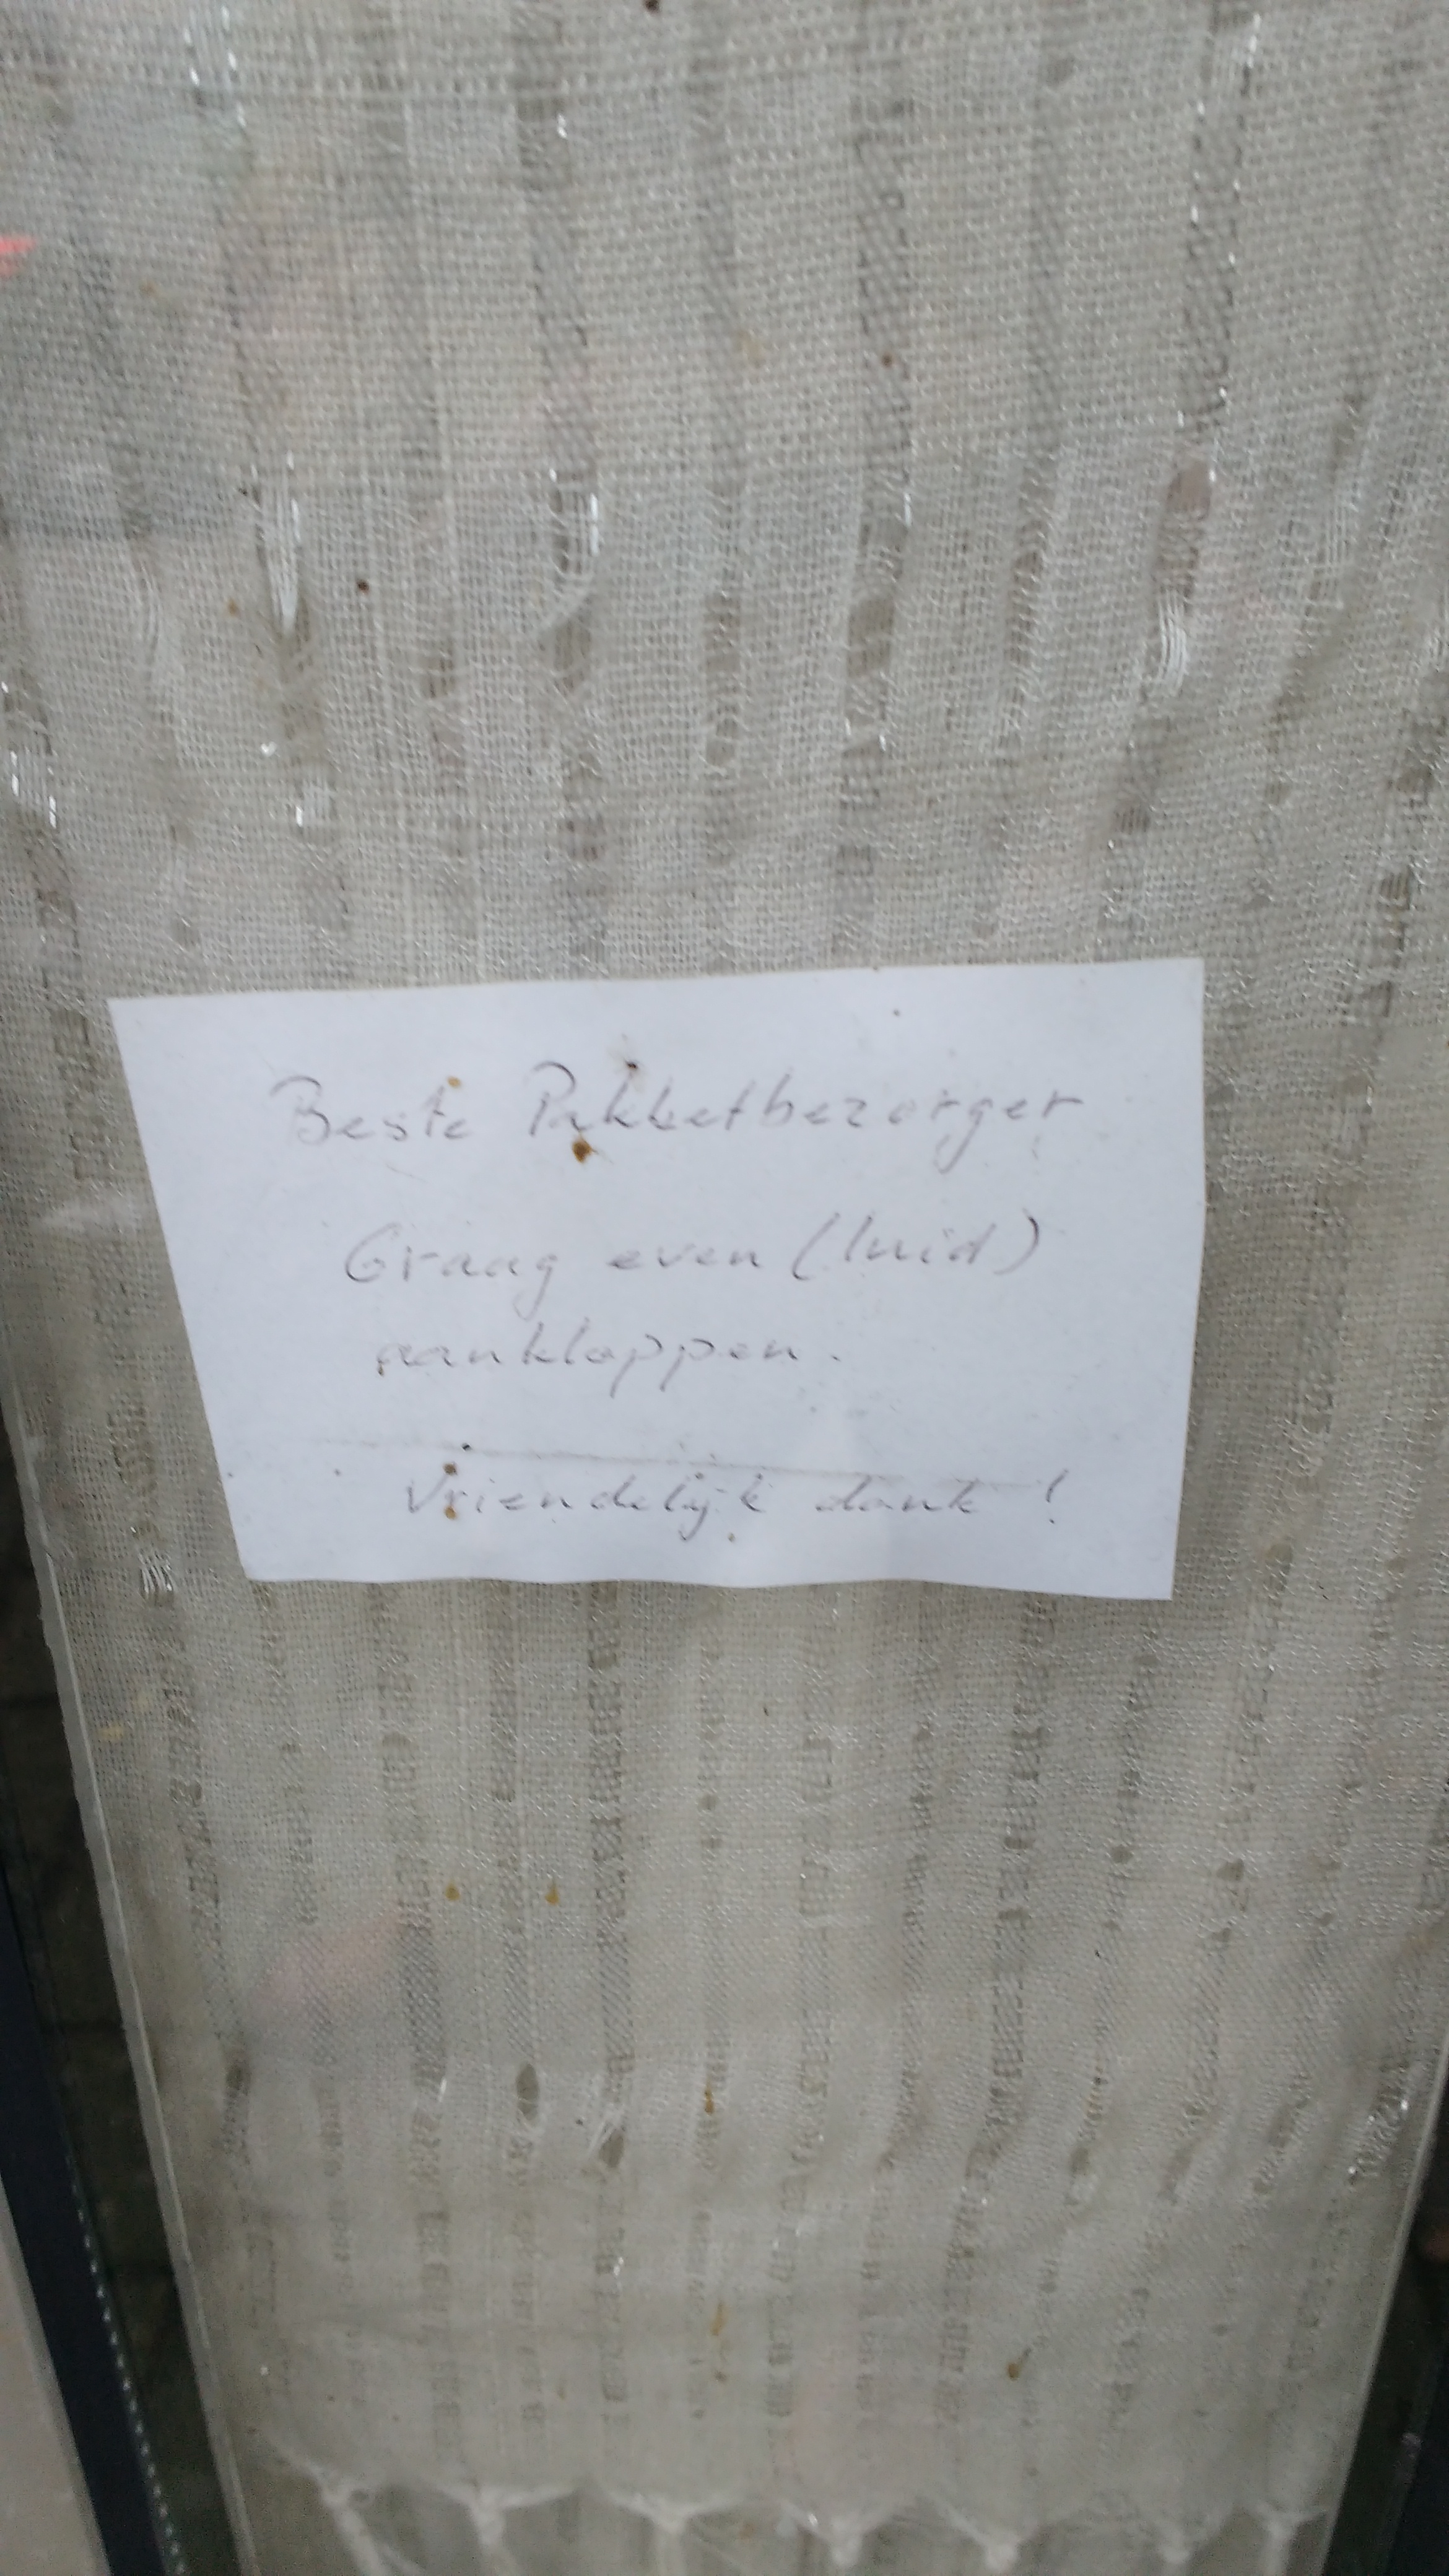 Beste Pakketbezorger
Graag even (luid)
aankloppen.
Vriendelijk dank!